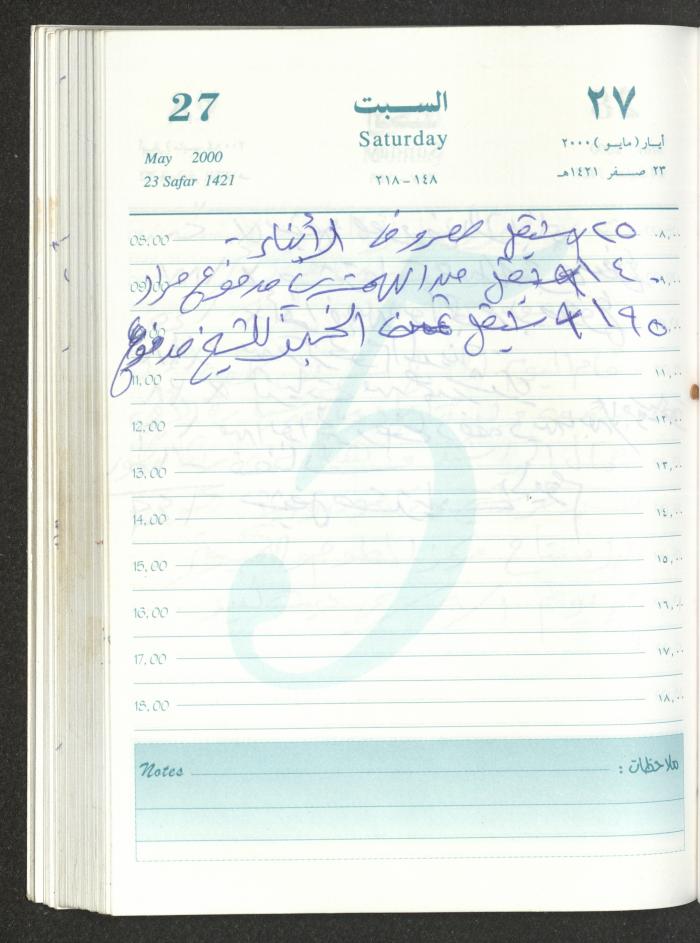 27
السبت
٢٧
May 2000
Saturday
أيار (مايو) ٢٠٠٠
23 Safar 1421
٢١٨ - ١٤٨
٢٣ صفر ١٤٢١هـ
08.00 ٢٥ شيقل مصروف الأبناء - ٠٨,٠٠
09.00 ١٤ شيقل مدفوع ٠٩,٠٠
١٩٥ شيقل ثمن للشيخ مدفوع
11.00 ١١,٠٠
12.00 ١٢,٠٠
13.00 ١٣,٠٠
14.00 ١٤,٠٠
15.00 ١٥,٠٠
16.00 ١٦,٠٠
17.00 ١٧,٠٠
18.00 ١٨,٠٠
Notes ملاحظات :